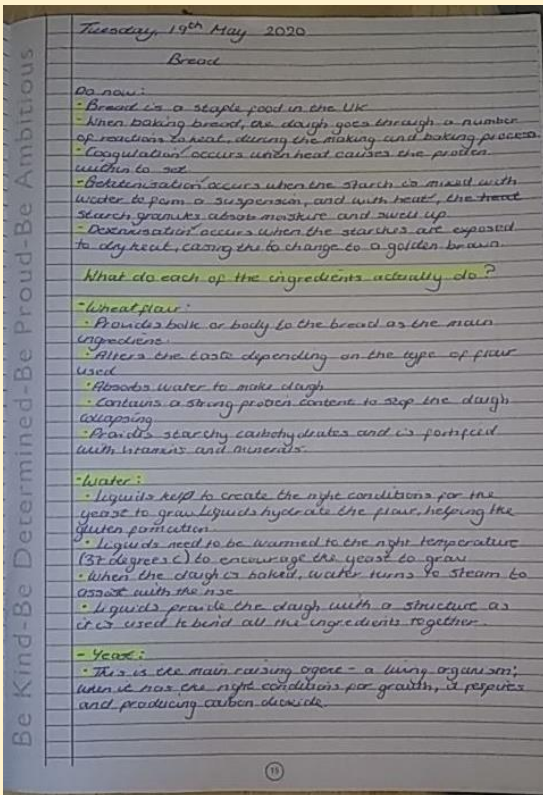 Be Kind-Be Determined-Be Proud-Be Ambitious
Tuesday, 19th May 2020
Bread
Do now:
- Bread is a staple food in the UK
- When baking bread, the dough goes through a number
of reactions to heat, during the making and baking process.
- Coagulation occurs when heat causes the protein
within to set
- Gelatenisation occurs when the starch is mixed with
water to form a suspension, and with heat, the heat
starch granules absorb moisture and swell up
- Dexenisation occurs when the starches are exposed
to dry heat, casing the to change to a golden brown.
What do each of the ingredients actually do?
- Wheat flour:
• Provides bulk or body to the bread as the main
ingredient.
• Alters the taste depending on the type of flour
used
• Absorbs water to make dough
• Contains a strong protein content to stop the dough
collapsing
• Provides starchy carbohydrates and is fortified
with vitamins and minerals.
- Water:
• Liquids help to create the right conditions for the
yeast to grow. Liquids hydrate the flour, helping the
gluten formation
• Liquids need to be warmed to the right temperature
(37 degrees C) to encourage the yeast to grow
• When the dough is baked, water turns to steam to
assist with the rise
• Liquids provide the dough with a structure as
it is used to bind all the ingredients together.
- Yeast:
• This is the main raising agent - a living organism;
when it has the right conditions for growth, it respires
and producing carbon dioxide
15